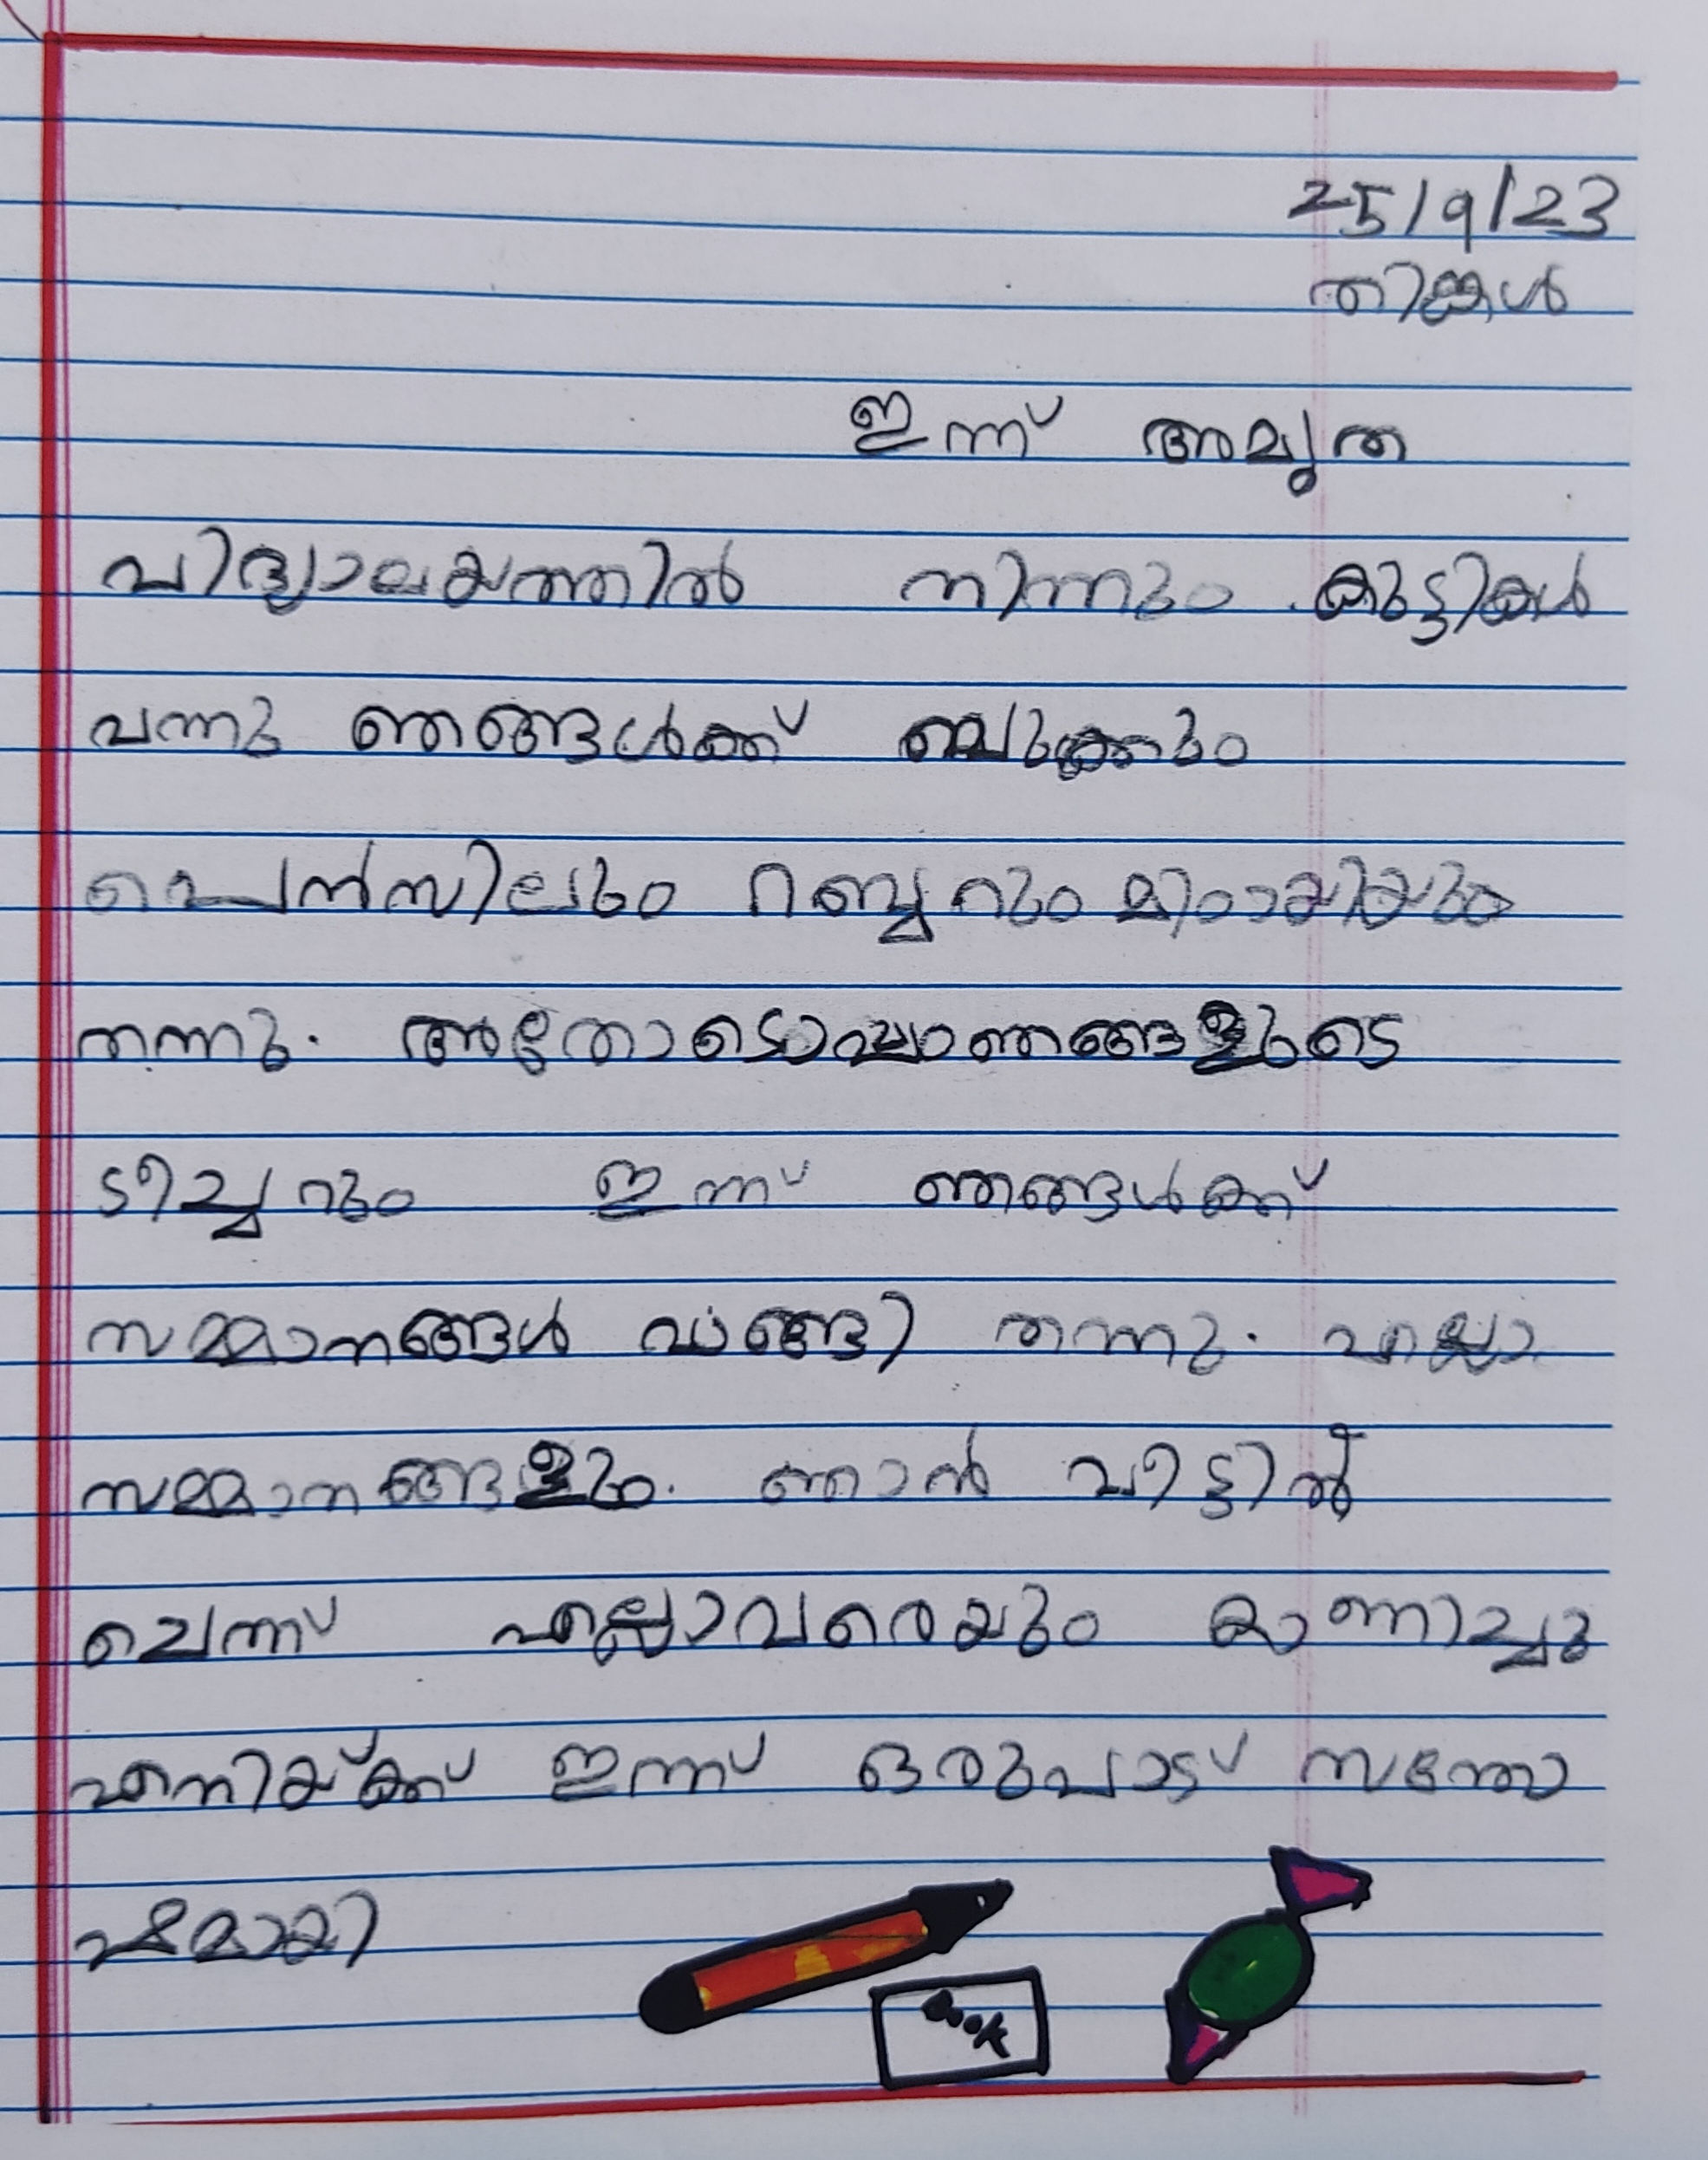 25/9/23
തിങ്കൾ
ഇന്ന് അമൃത
വിദ്യാലയത്തിൽ നിന്നും കുട്ടികൾ
വന്നു ഞങ്ങൾക്ക് ബുക്കും
പെൻസിലും റബ്ബറും മിഠായിയും
തന്നു. അതോടൊപ്പം ഞങ്ങളുടെ
ടീച്ചറും ഇന്ന് ഞങ്ങൾക്ക്
സമ്മാനങ്ങൾ വാങ്ങി തന്നു. എല്ലാ
സമ്മാനങ്ങളും. ഞാൻ വീട്ടിൽ
ചെന്ന് എല്ലാവരെയും കാണിച്ചു
എനിയ്ക്ക് ഇന്ന് ഒരുപാട് സന്തോ
ഷമായി
BOOK